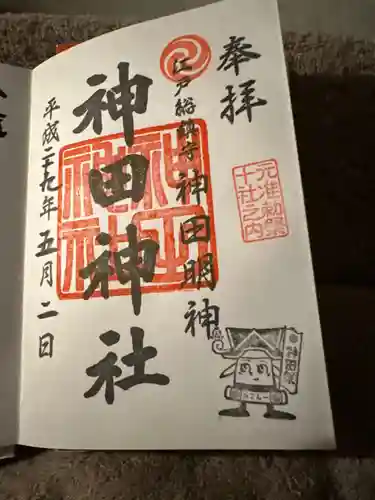 奉拝
元准勅祭
十社之内
江戸総鎮守 神田明神
神田神社
平成二十九年五月二日
神田祭